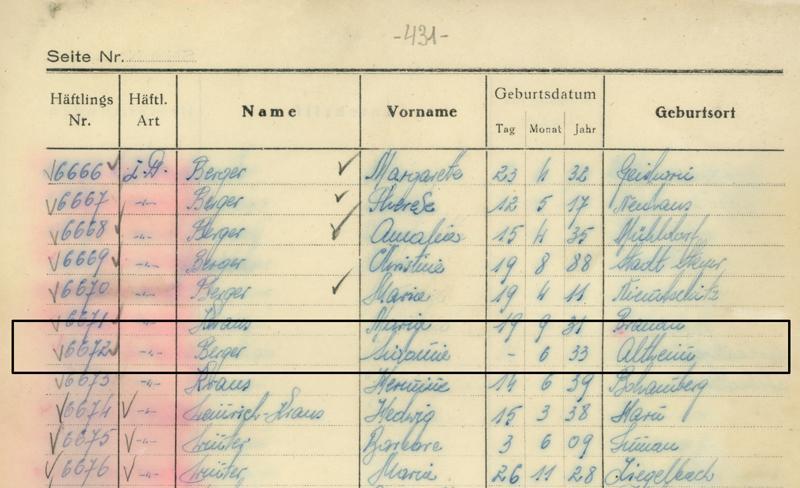 -431-
Seite Nr.
Häftlings Nr. Häftl. Art Name Vorname Geburtsdatum Geburtsort
Tag Monat Jahr
6666 Z.D. Berger Margarete 23 4 32
6667 -"- Berger Therese 12 5 17 Neuhaus
6668 -"- Berger Amalia 15 4 35 Mühldorf
6669 -"- Berger Christine 19 8 88 Stadt Steyer
6670 -"- Berger Maria 19 4 11
6671 -"- Kraus Maria 19 9 31 Braunau
6672 -"- Berger Sidonie - 6 33 Altheim
6673 -"- Kraus Hermine 14 6 39
6674 -"- Heinrich-Kraus Hedwig 15 3 38
6675 -"- Barbara 3 6 09
6676 -"- Maria 26 11 28 Ziegelbach